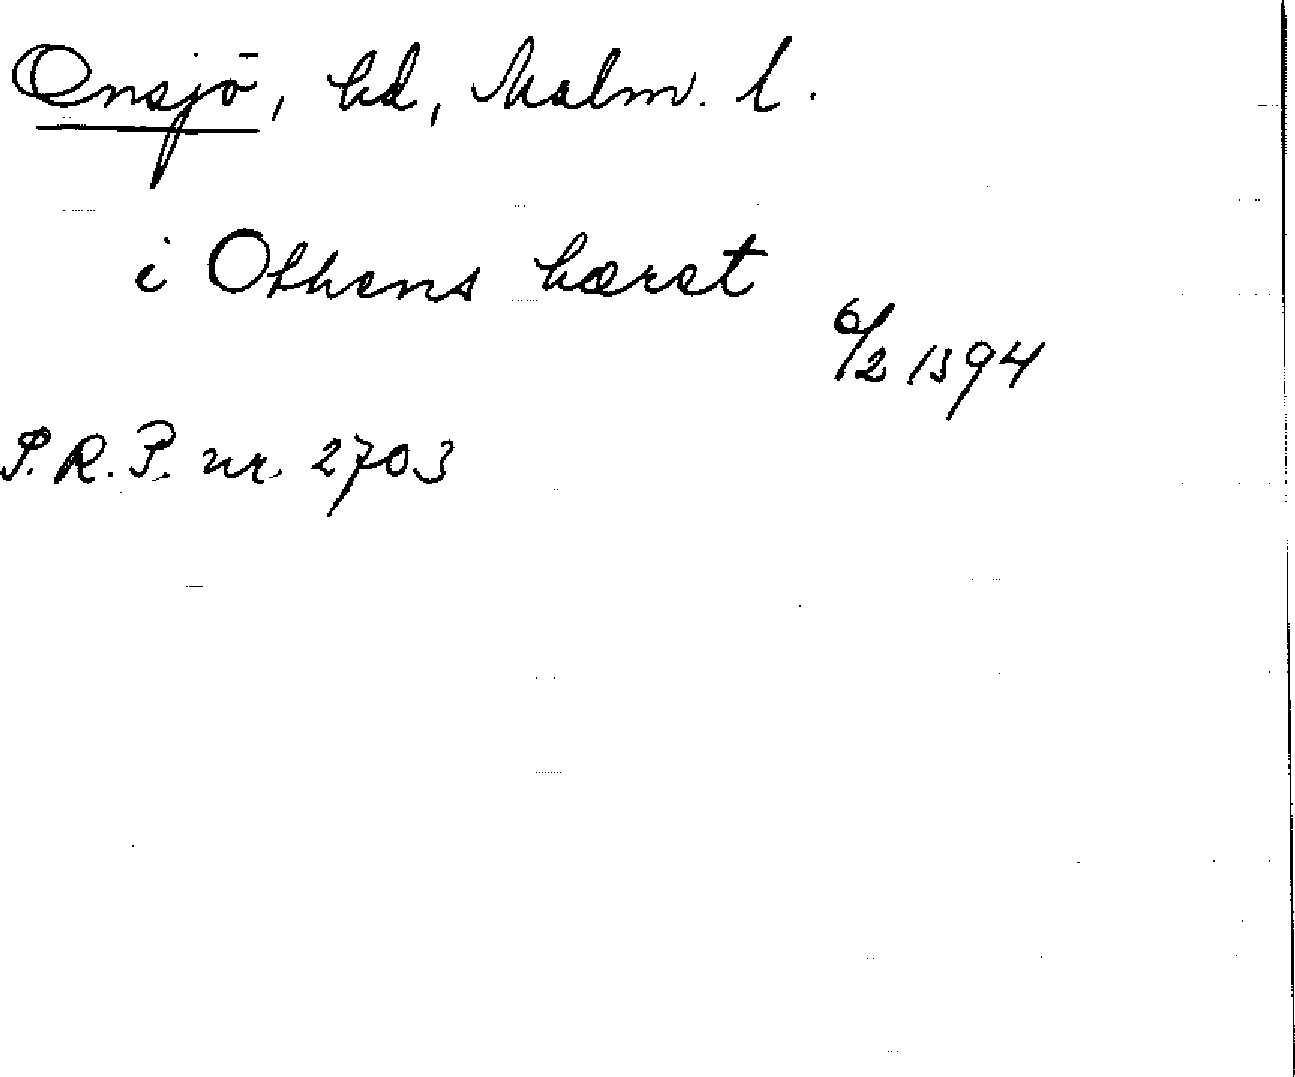 Onsjö, hd, Malm. l.
i Othens hæret
6/2 1394
P.R.P. nr. 2703